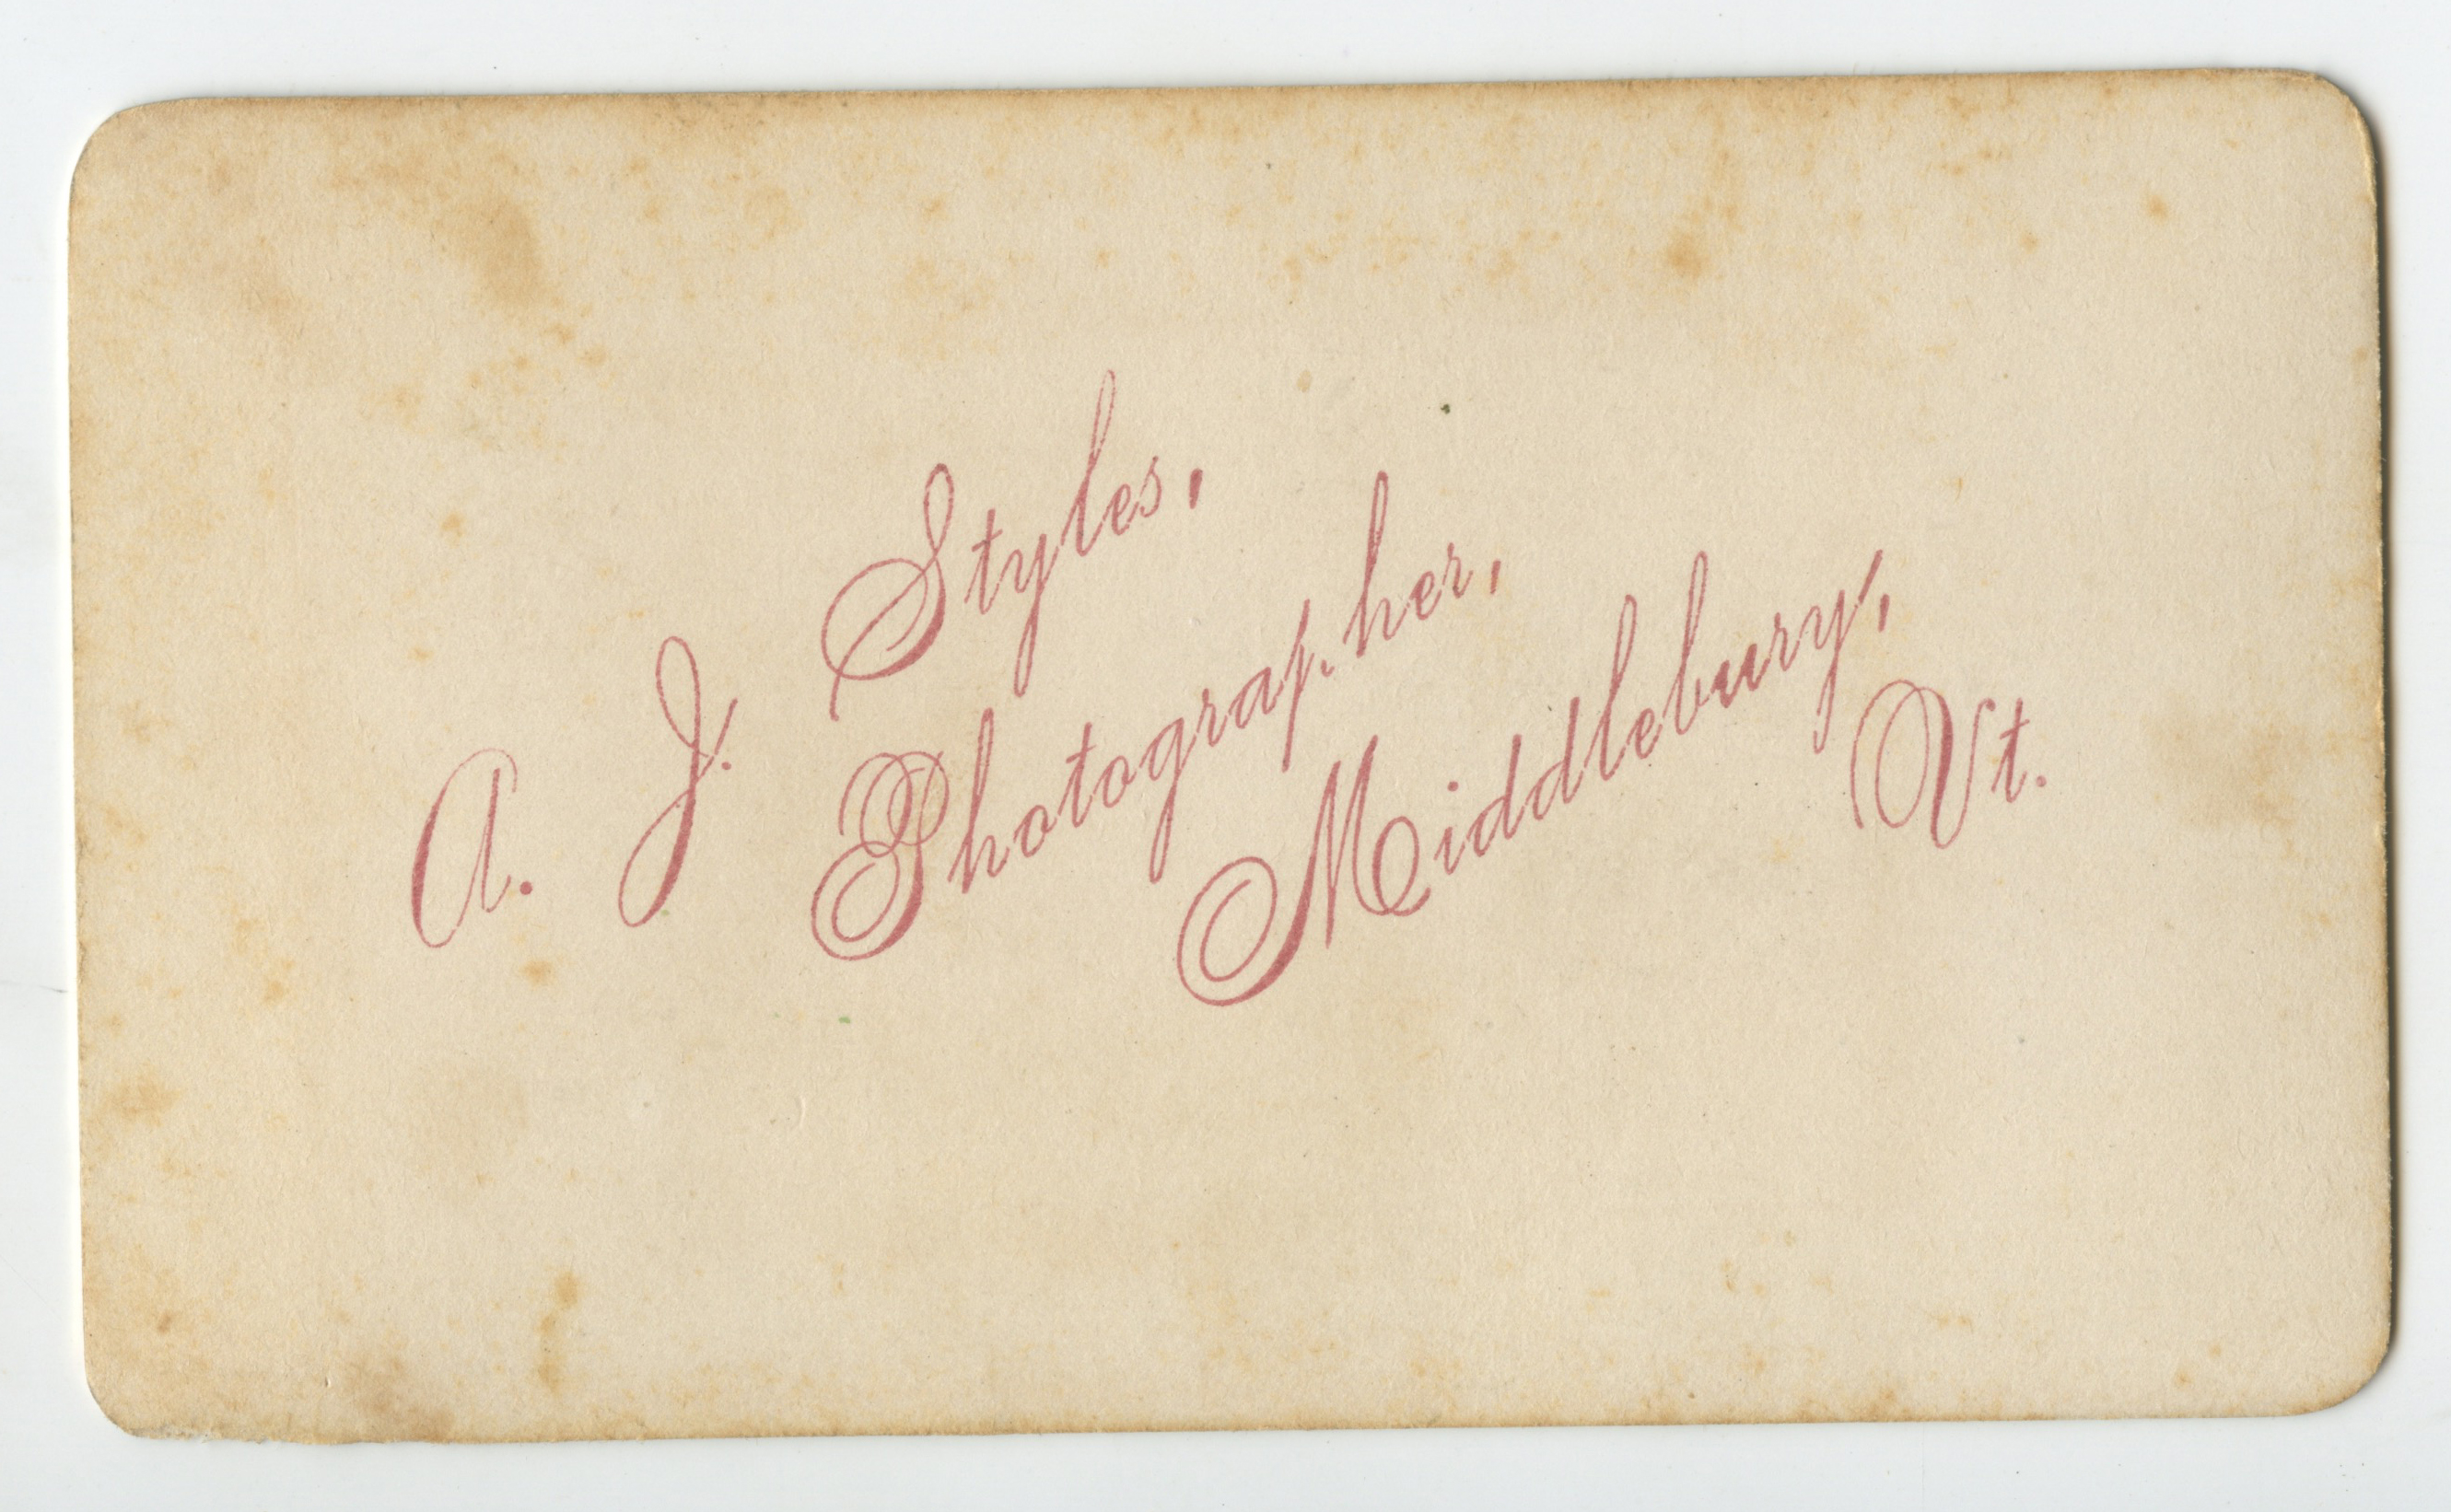 A. J. Styles,
Photographer,
Middlebury,
Vt.